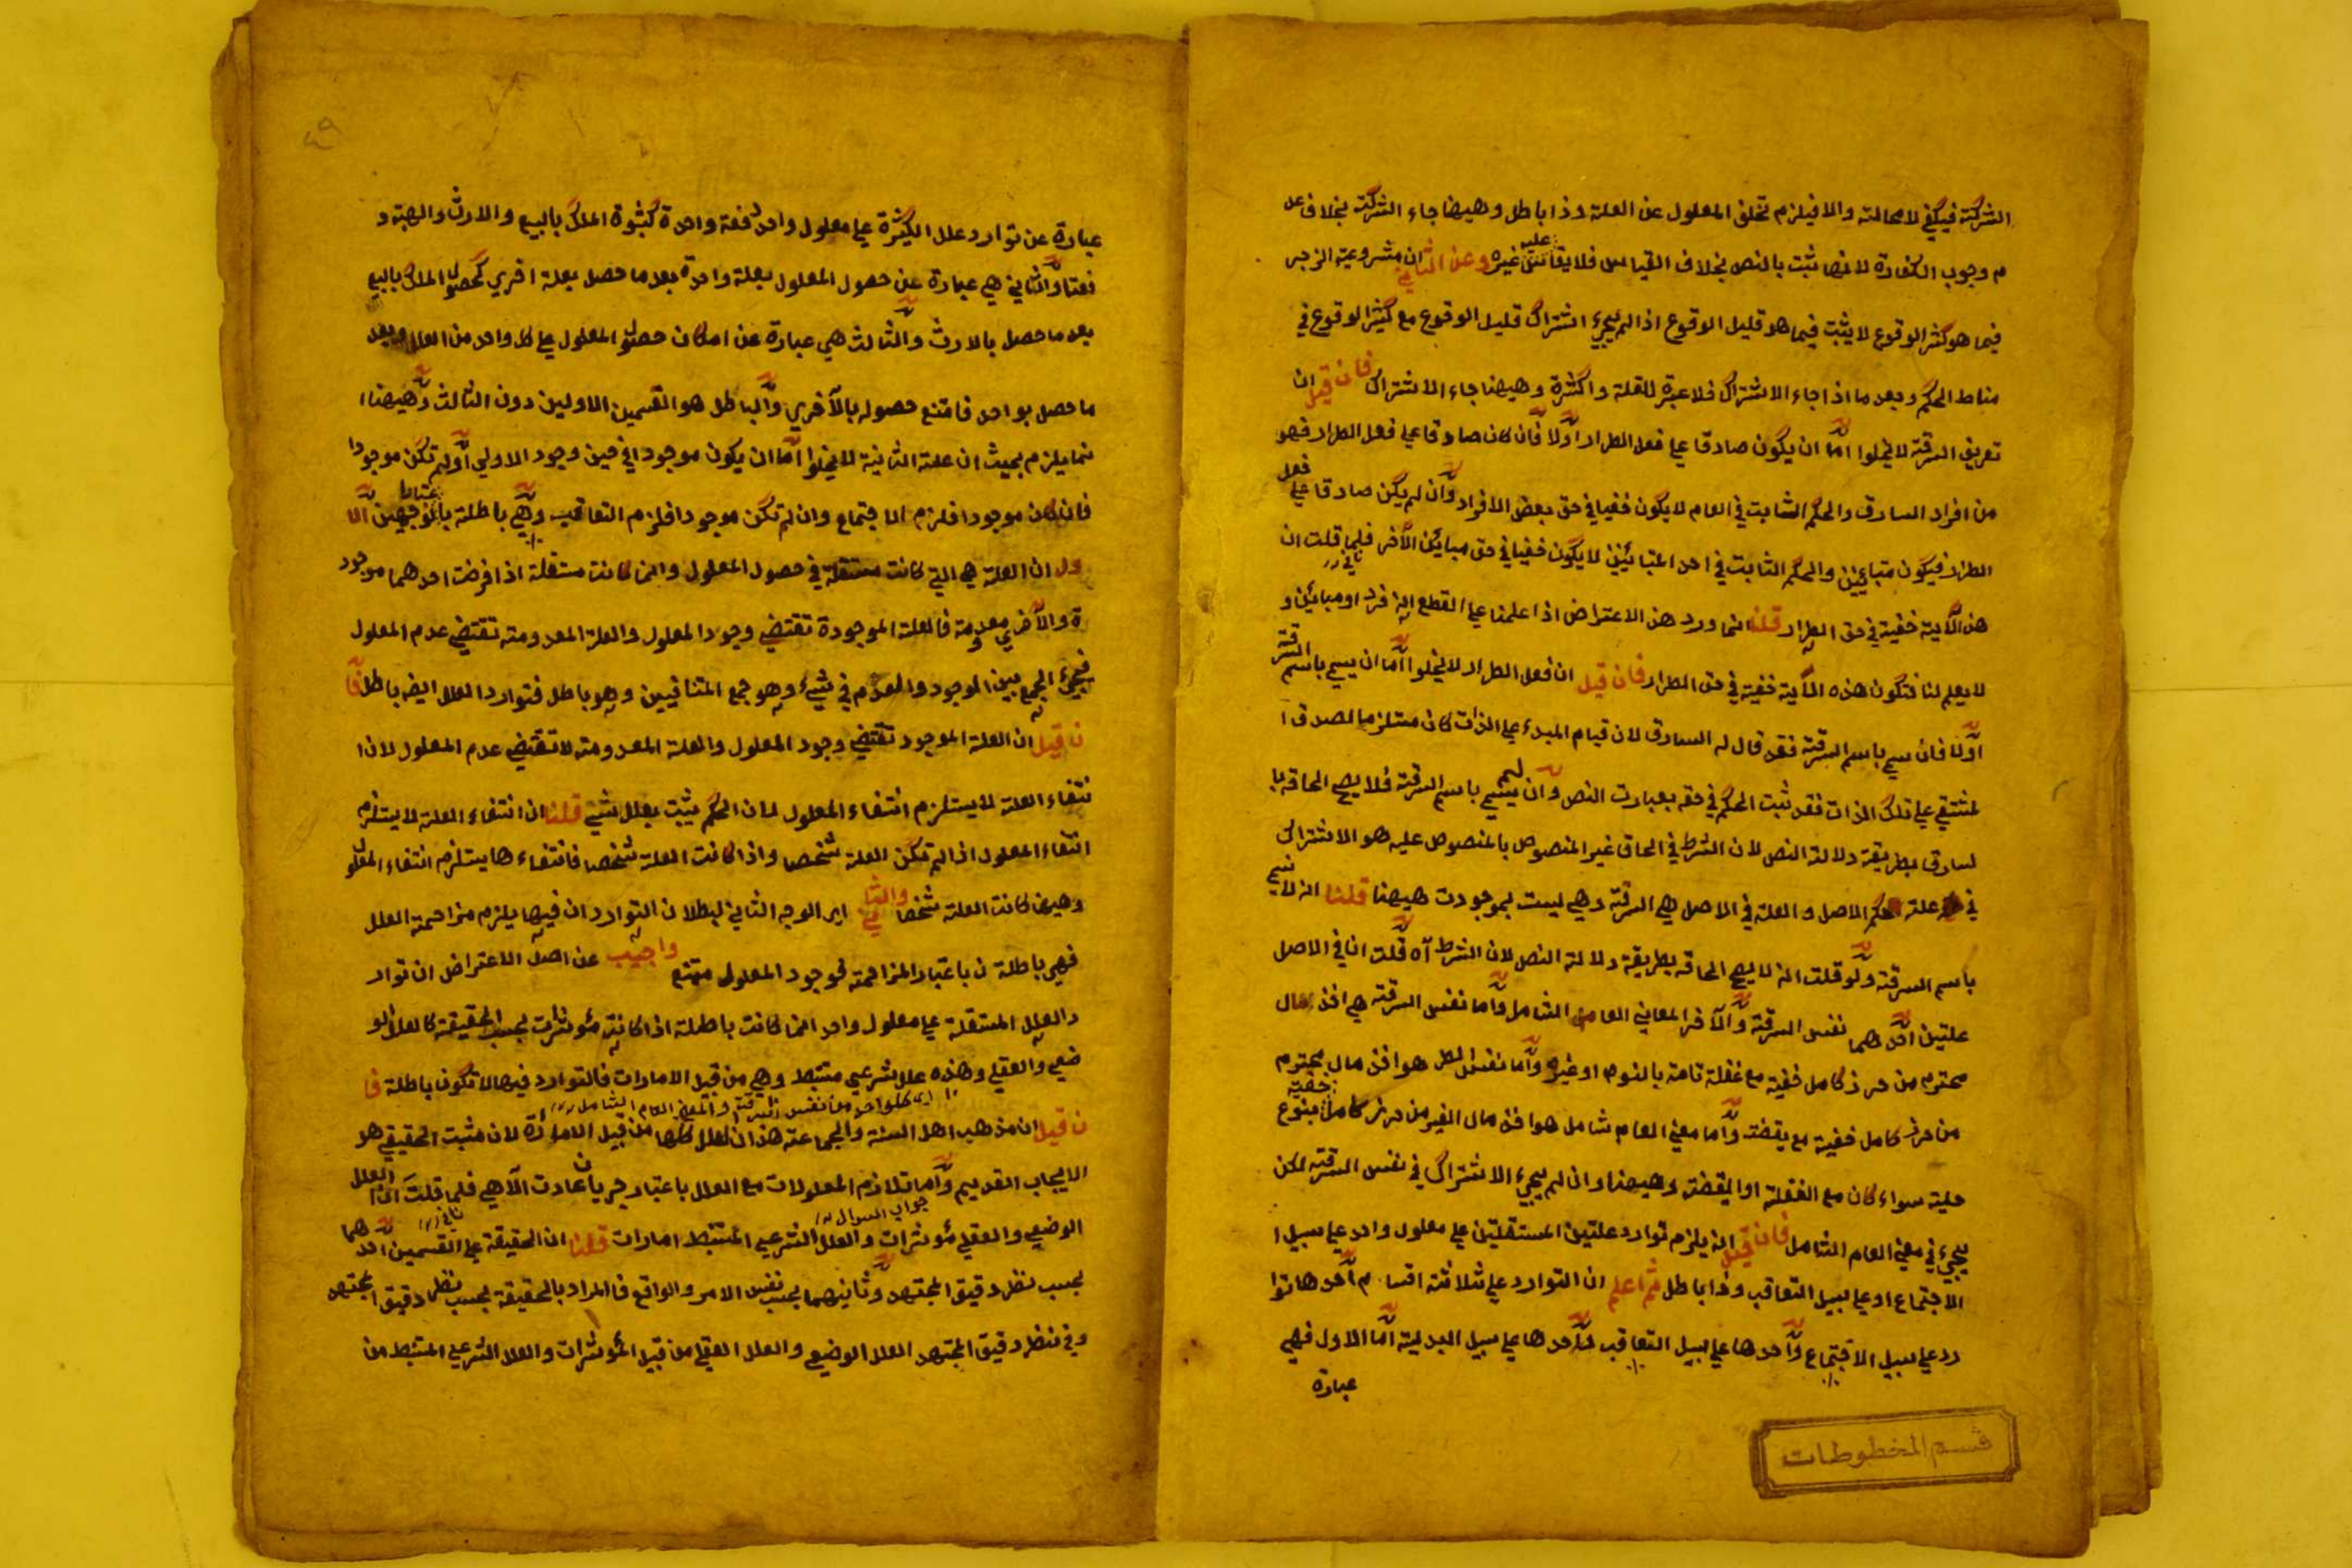 الشركة فيكفي لا محالته والا فيلزم تخلف المعلول عن العلة وذا باطل وهيهنا جاء الشركة بخلاف عد
م وجوب الكفارة لانها ثبت بالنص بخلاف القياس فلا يقاس عليه غيره وعن الثاني ان مشروعية الزجر
فيما هو كثير الوقوع لا يثبت فيما هو قليل الوقوع اذا لم يجئ اشتراك قليل الوقوع مع كثير الوقوع في
مناط الحكم وبعد ما اذا جاء الاشتراك فلا عبرة للقلة والكثرة وهيهنا جاء الاشتراك فان قيل ان
تعريف السرقة لا يخلوا اما ان يكون صادقا علي فعل الطرار اولا فان كان صادقا علي فعل الطرار فهو
من افراد السارق والحكم الثابت في العام لا يكون خفيا في حق بعض الافراد وان لم يكن صادقا علي فعل
الطرار فيكون متبائنين والحكم الثابت في احد المتبائنين لا يكون خفيا في حق مبائن الآخر فلما قلت ان
هذ الآية خفية في حق الطرار قلنا انما ورد هذ الاعتراض اذا علمنا علي القطع انه فرد او مبائن و
لا يعلم لنا فتكون هذه الآية خفية في حق الطرار فان قيل ان فعل الطرار لا يخلوا اما ان يسمي باسم السرقة
اولا فان سمي باسم السرقة فقد قال له السارق لان قيام المبدء علي الذات كان مستلزما لصدق ا
لمشتق علي تلك الذات فقد ثبت الحكم في حقه بعبارت النص وان لم يسم باسم السرقة فلا يصح الحاقه با
لسارق بطريقة دلالة النص لان الشرط في الحاق غير المنصوص بالمنصوص عليه هو الاشتراك
في علة حكم الاصل والعلة في الاصل هي السرقة وهي ليست بموجودت هيهنا قلنا انه لا يسم
باسم السرقة ولو قلت انه لا يصح الحاقه بطريقة دلالة النص لان الشرط آه قلت ان في الاصل
علتين احدهما نفس السرقة والآخر المعاني العام الشامل واما نفس السرقة هي اخذ مال
محترم من حرز كامل خفية مع غفلة تامة بالنوم او غيره واما نفس الطر هو اخذ مال محترم
من حرز كامل خفية مع يقضة واما معني العام شامل هو اخذ مال الغير من حرز كامل خفية بنوع
حلية سواء كان مع الغفلة او اليقضة وهيهنا وان لم يجئ الاشتراك في نفس السرقة لكن
يجئ في معني العام الشامل فان قيل انه يلزم توارد علتين المستقلتين علي معلول واحد علي سبيل ا
لاجتماع او علي سبيل التعاقب وذا باطل ثم اعلم ان التوارد علي ثلاثة اقسام احدها توا
رد علي سبيل الاجتماع واحدها علي سبيل التعاقب واحدها علي سبيل البدلية اما الاول فهي
عبارة
قسم المخطوطات
٤٩
عبارة عن توارد علل الكثيرة علي معلول واحد دفعة واحدة كثبوة الملك بالبيع والارث والهبة د
فعتا والثاني هي عبارة عن حصول المعلول بعلة واحدة بعد ما حصل بعلة اخري كحصول الملك بالبيع
بعد ما حصل بالارث والثالث هي عبارة عن امكان حصول المعلول علي كل واحد من العلل وبعد
ما حصل بواحد فامتنع حصوله بالآخري والباطل هو القسمين الاولين دون الثالث وهيهنا ا
نما يلزم بحيث ان علة الثانية لا يخلوا اما ان يكون موجودا في حين وجود الاولي اولم تكن موجودا
فان كان موجودا فلزم الاجتماع وان لم تكن موجودا فلزم التعاقب وهي باطلة بالوجهين الا
ول ان العلة هي التي كانت مستقلة في حصول المعلول وانما كانت مستقلة اذا فرضت احدهما موجود
ة والآخري معدومة فالعلة الموجودة تقتضي وجود المعلول والعلة المعدومة تقتضي عدم المعلول
فيجئ الجمع بين الموجود والمعدوم في شيء وهو جمع المتنافيين وهو باطل فتوارد العلل ايضه باطل فا
ن قيل ان العلة الموجود تقتضي وجود المعلول والعلة المعدومة لا تقتضي عدم المعلول لان ا
نتفاء العلة لا يستلزم انتفاء المعلول لان الحكم يثبت بعلل شتي قلنا ان انتفاء العلة لا يستلزم
انتفاء المعلول اذا لم تكن العلة شخصا واذا كانت العلة شخصا فانتفاءها يستلزم انتفاء المعلول
وهيهنا كانت العلة شخصا والثاني اي الوجه الثاني لبطلان التوارد ان فيها يلزم مزاحمة العلل
فهي باطلة ن باعتبار المزاحمة فوجود المعلول ممتنع واجيب عن اصل الاعتراض ان توار
د العلل المستقلة علي معلول واحد انما كانت باطلة اذا كانت مئوثرات بحسب الحقيقة كالعلل الو
ضعي والعقلي وهذه علل شرعي مستنبط وهي من قبيل الامارات فالتوارد فيها لا تكون باطلة فا
اي كلواحد من نفس السرقة والمعني العام الشامل
ن قيل ان مذهب اهل السنة والجماعة هذ ان العلل كلها من قبيل الامارة لان مثبت الحقيقي هو
الايجاب القديم واما تلازم المعلولات مع العلل باعتبار جريان عادت الآهي فلما قلت ان العلل
جواب السوال
الوضعي والعقلي مئوثرات والعلل الشرعي المستنبط امارات قلنا ان الحقيقة علي القسمين احدهما
بحسب نظر دقيق المجتهد وثانيهما بحسب نفس الامر والواقع فالمراد بالحقيقة بحسب نظر دقيق المجتهد
وفي نظر دقيق المجتهد العلل الوضعي والعلل العقلي من قبيل المئوثرات والعلل الشرعي المستنبط من